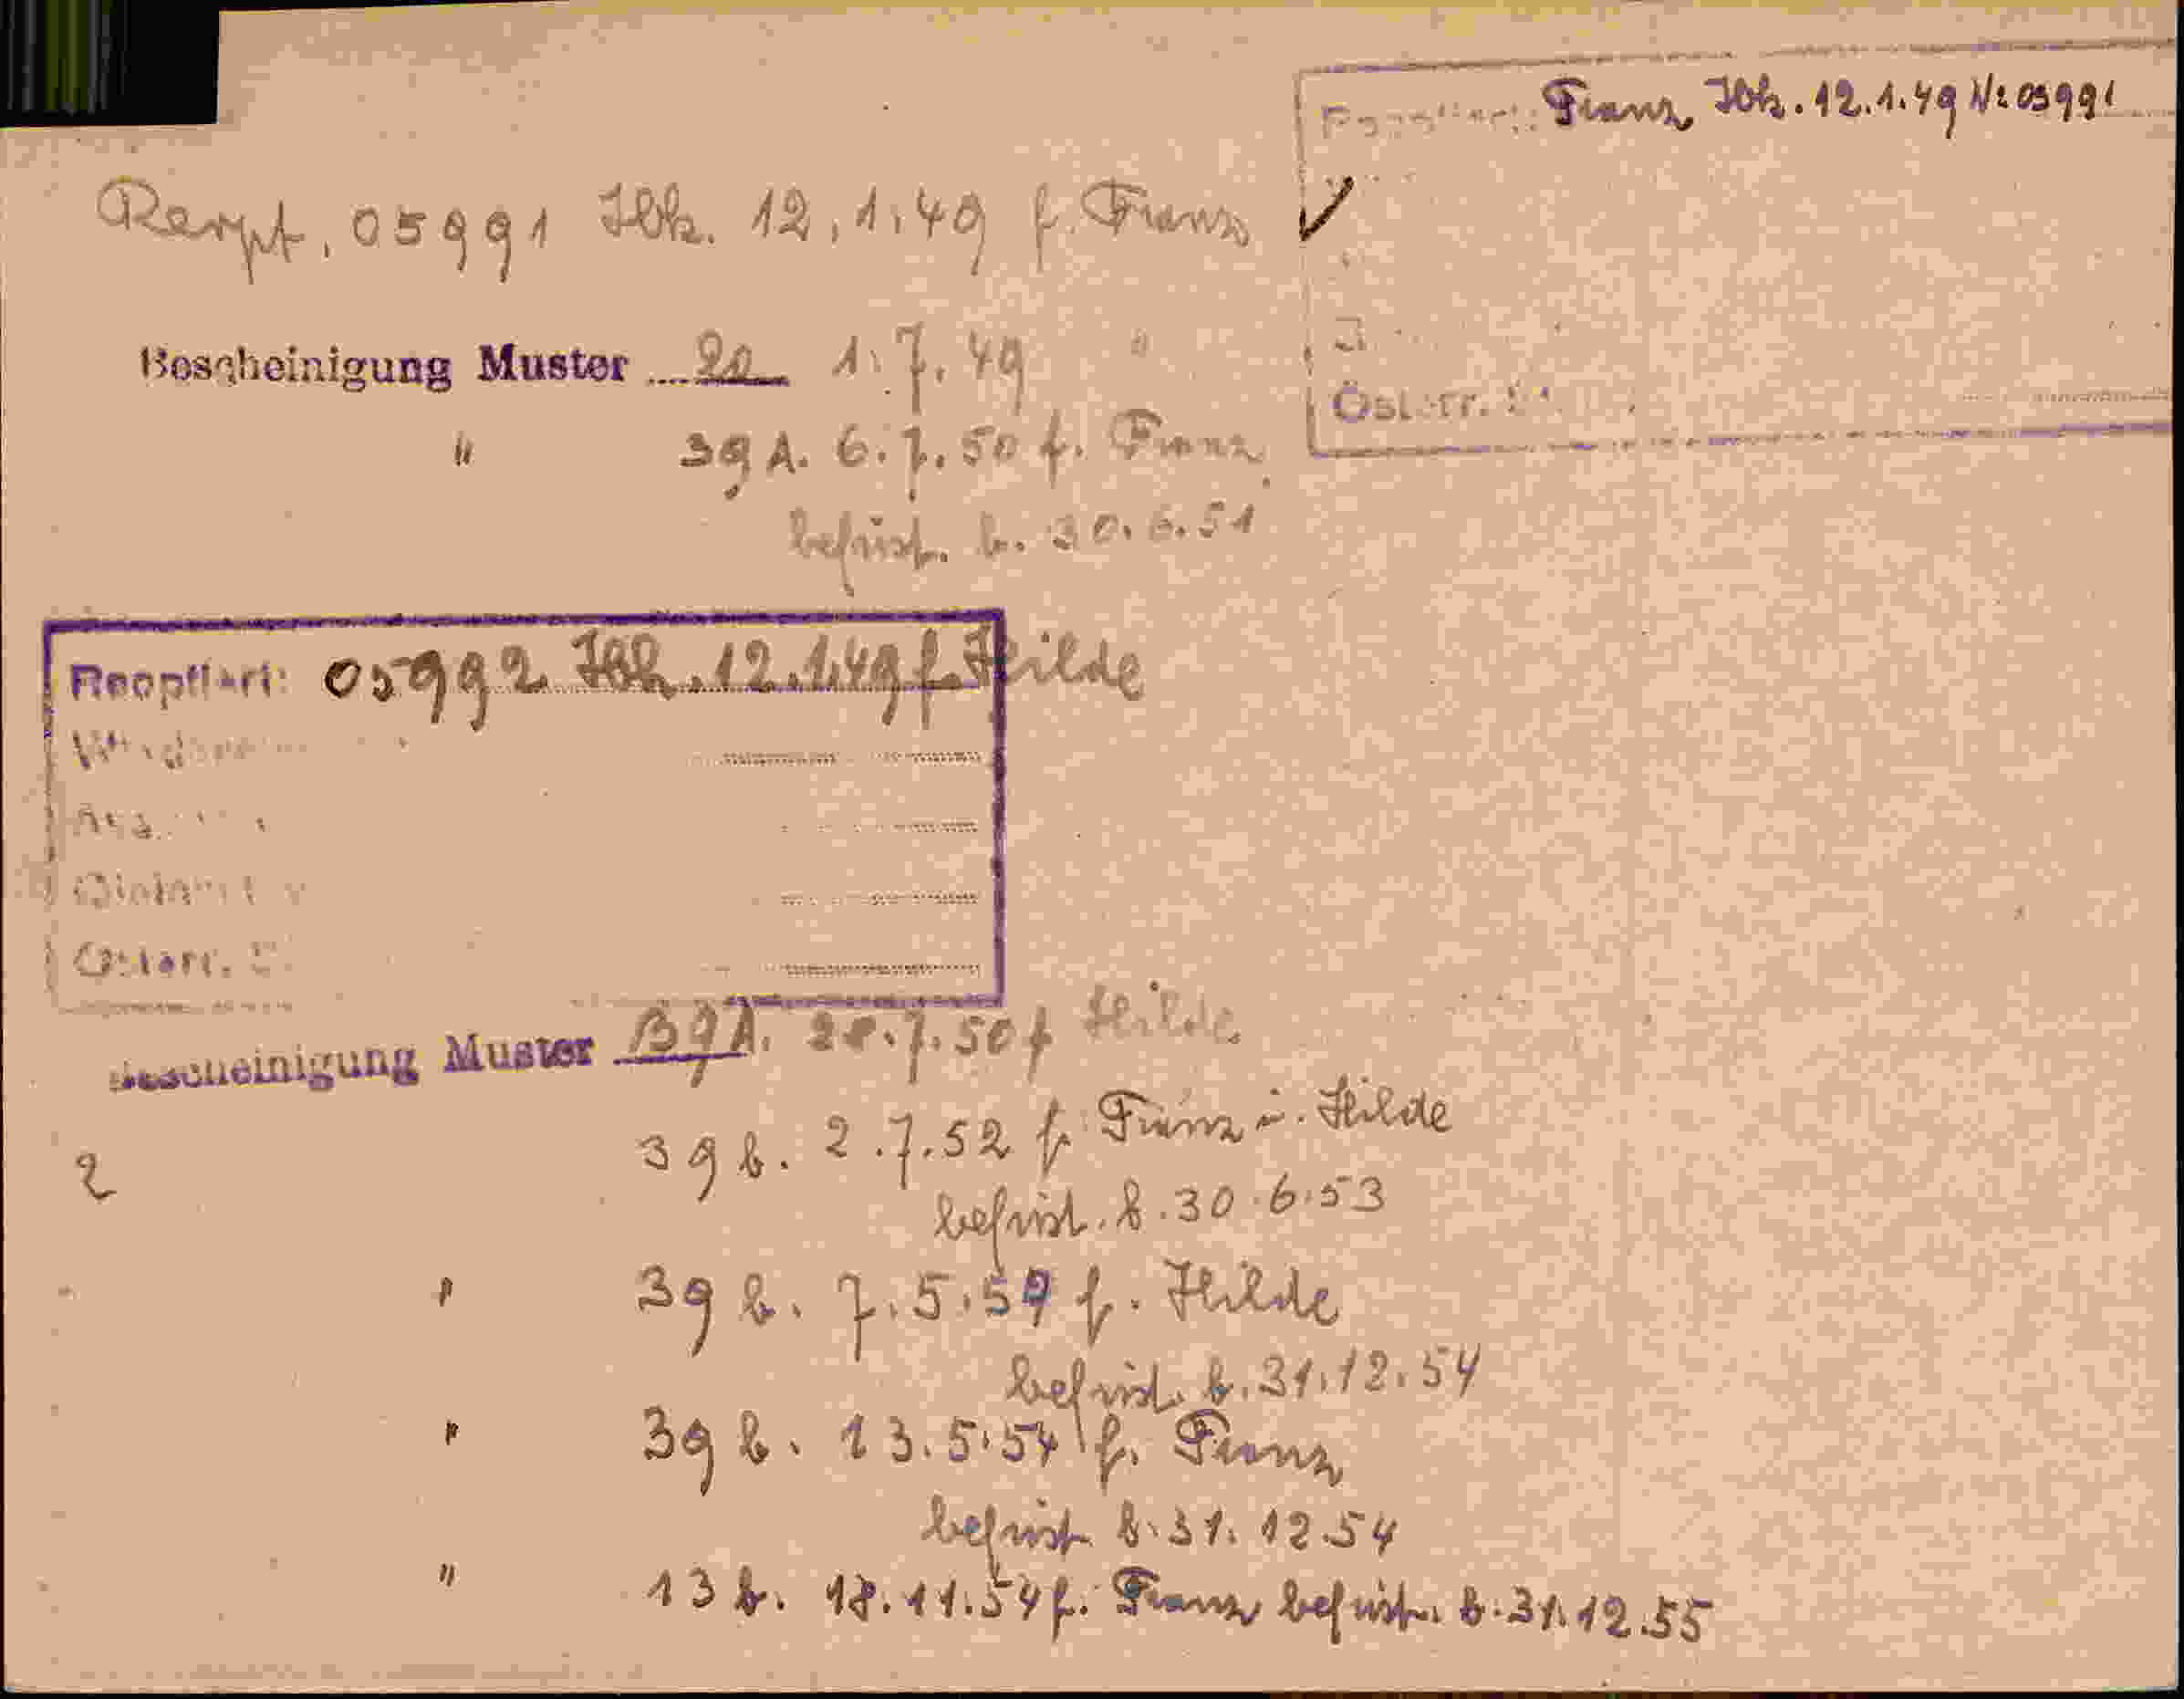 Franz Ibk. 12.1.49 Nr 05991
Reopt. 05991 Ibk. 12.1.49 f. Franz
Bescheinigung Muster 20 1.7.49 "
Österr.
" 39 A. 6.7.50 f. Franz
befrist. b. 30.6.51
Reoptiert: 05992 Ibk. 12.1.49 f. Hilde
Österr.
Bescheinigung Muster 39 A. 20.7.50 f Hilde
2 39 b. 2.7.52 f. Franz u. Hilde
befrist. b. 30.6.53
" 39 b. 7.5.54 f. Hilde
befrist. b. 31.12.54
" 39 b. 13.5.54 f. Franz
befrist b. 31.12.54
" 13 b. 18.11.54 f. Franz befrist. b. 31.12.55